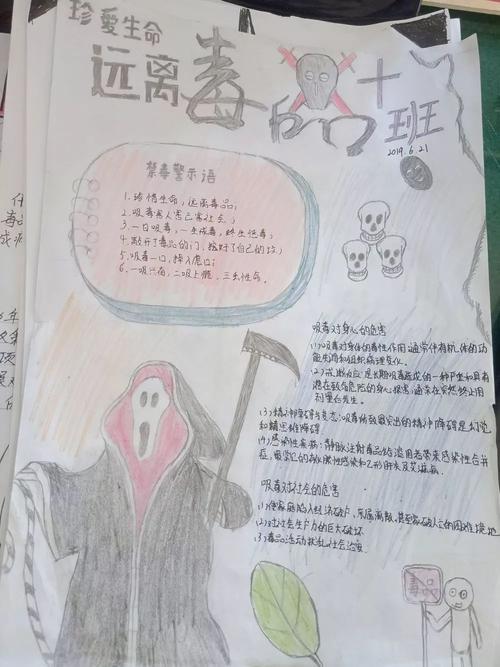 珍爱生命
远离毒品
十班
2019.6.21
禁毒警示语
1.珍惜生命,远离毒品;
2.吸毒害人害己害社会;
3.一日吸毒,一生戒毒,终生想毒;
4.敞开了毒品的门,挖好了自己的坟;
5.吸毒一口,掉入虎口;
6.一吸兴奋,二吸上瘾,三丢性命.
吸毒对身心的危害
(1)吸毒对身体的毒性作用:通常伴有机体的功
能失调和组织病理变化。
(2)戒断反应:是长期吸毒造成的一种严重和具有
潜在致命危险的身心损害,通常在突然终止用
(3)精神障碍与变态:吸毒所致最突出的精神障碍是幻觉
和思维障碍
(4)感染性疾病:静脉注射毒品给滥用者带来感染性合并
症,最常见的有化脓性感染和乙形肝炎及艾滋病.
吸毒对社会的危害
(1)使家庭陷入经济破产、亲属离散、甚至家破人亡的困难境地
(2)对社会生产力的巨大破坏
(3)毒品活动扰乱社会治安
毒品